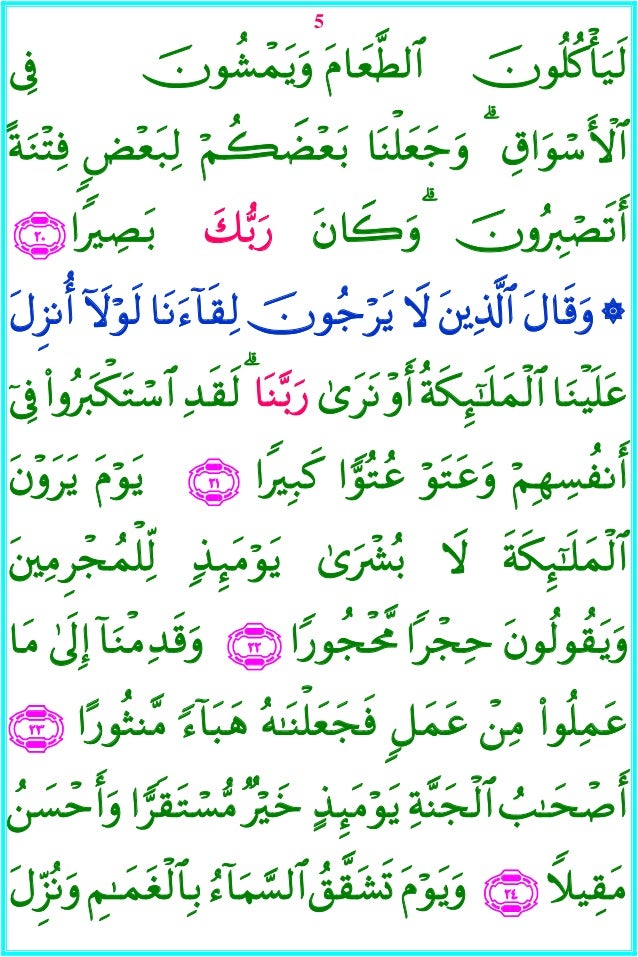 5
لَيَأْكُلُونَ ٱلطَّعَامَ وَيَمْشُونَ فِى
ٱلْأَسْوَاقِ ۗ وَجَعَلْنَا بَعْضَكُمْ لِبَعْضٍ فِتْنَةً
أَتَصْبِرُونَ ۗ وَكَانَ رَبُّكَ بَصِيرًا ٢٠
۞ وَقَالَ ٱلَّذِينَ لَا يَرْجُونَ لِقَآءَنَا لَوْلَآ أُنزِلَ
عَلَيْنَا ٱلْمَلَـٰٓئِكَةُ أَوْ نَرَىٰ رَبَّنَا ۗ لَقَدِ ٱسْتَكْبَرُوا۟ فِىٓ
أَنفُسِهِمْ وَعَتَوْ عُتُوًّا كَبِيرًا ٢١ يَوْمَ يَرَوْنَ
ٱلْمَلَـٰٓئِكَةَ لَا بُشْرَىٰ يَوْمَئِذٍ لِّلْمُجْرِمِينَ
وَيَقُولُونَ حِجْرًا مَّحْجُورًا ٢٢ وَقَدِمْنَآ إِلَىٰ مَا
عَمِلُوا۟ مِنْ عَمَلٍ فَجَعَلْنَـٰهُ هَبَآءً مَّنثُورًا ٢٣
أَصْحَـٰبُ ٱلْجَنَّةِ يَوْمَئِذٍ خَيْرٌ مُّسْتَقَرًّا وَأَحْسَنُ
مَقِيلًا ٢٤ وَيَوْمَ تَشَقَّقُ ٱلسَّمَآءُ بِٱلْغَمَـٰمِ وَنُزِّلَ